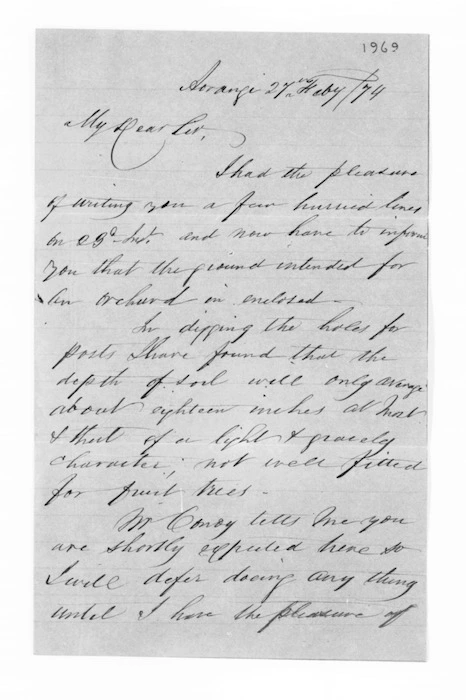 1969
Aorangi 27th Feby /74
My Dear Sir,
I had the pleasure
of writing you a few hurried lines
on 23d Inst. and now have to inform
you that the ground intended for
an orchard is enclosed -
In digging the holes for
posts I have found that the
depth of soil will only average
about eighteen inches at most
& that of a light & gravely
character; not well fitted
for fruit trees -
Mr Conoy tells me you
are shortly expected here so
I will defer doing any thing
until I have the pleasure of